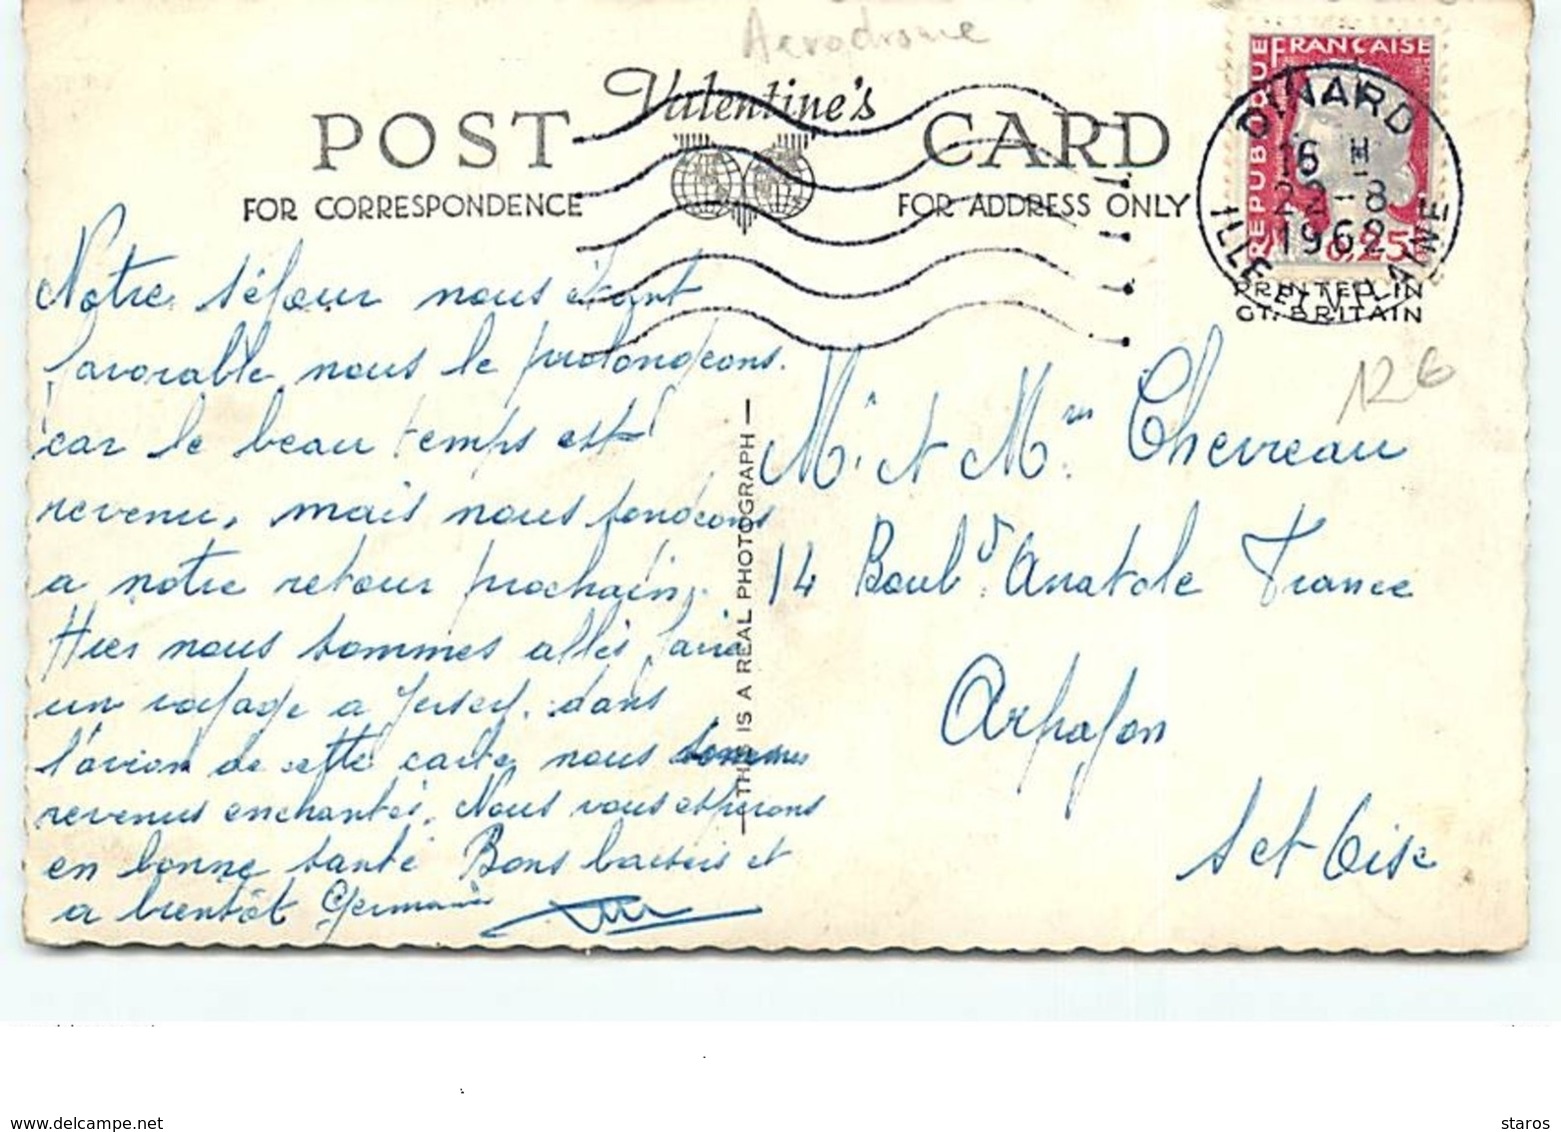 Aerodrome
Valentine's
POST CARD
FOR CORRESPONDENCE
FOR ADDRESS ONLY
REPUBLIQUE FRANÇAISE
0,25
DINARD
16 H
22-8
1962
ILLE-ET-VILAINE
PRINTED IN
GT. BRITAIN
12€
Notre séjour nous étant
favorable nous le prolongeons.
car le beau temps est
revenu, mais nous songeons
a notre retour prochain.
Hier nous sommes allés faire
un voyage a Jersey. dans
l'avion de cette carte nous sommes
revenus enchantés. Nous vous esperons
en bonne santé Bons baisers et
a bientôt Germaine
THIS IS A REAL PHOTOGRAPH
Mr et Mme Chevreau
14 Boul d Anatole France
Arpajon
S et Oise
www.delcampe.net
staros